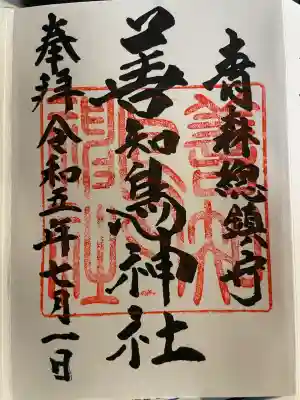 青森総鎮守
善知鳥神社
奉拝令和五年七月一日